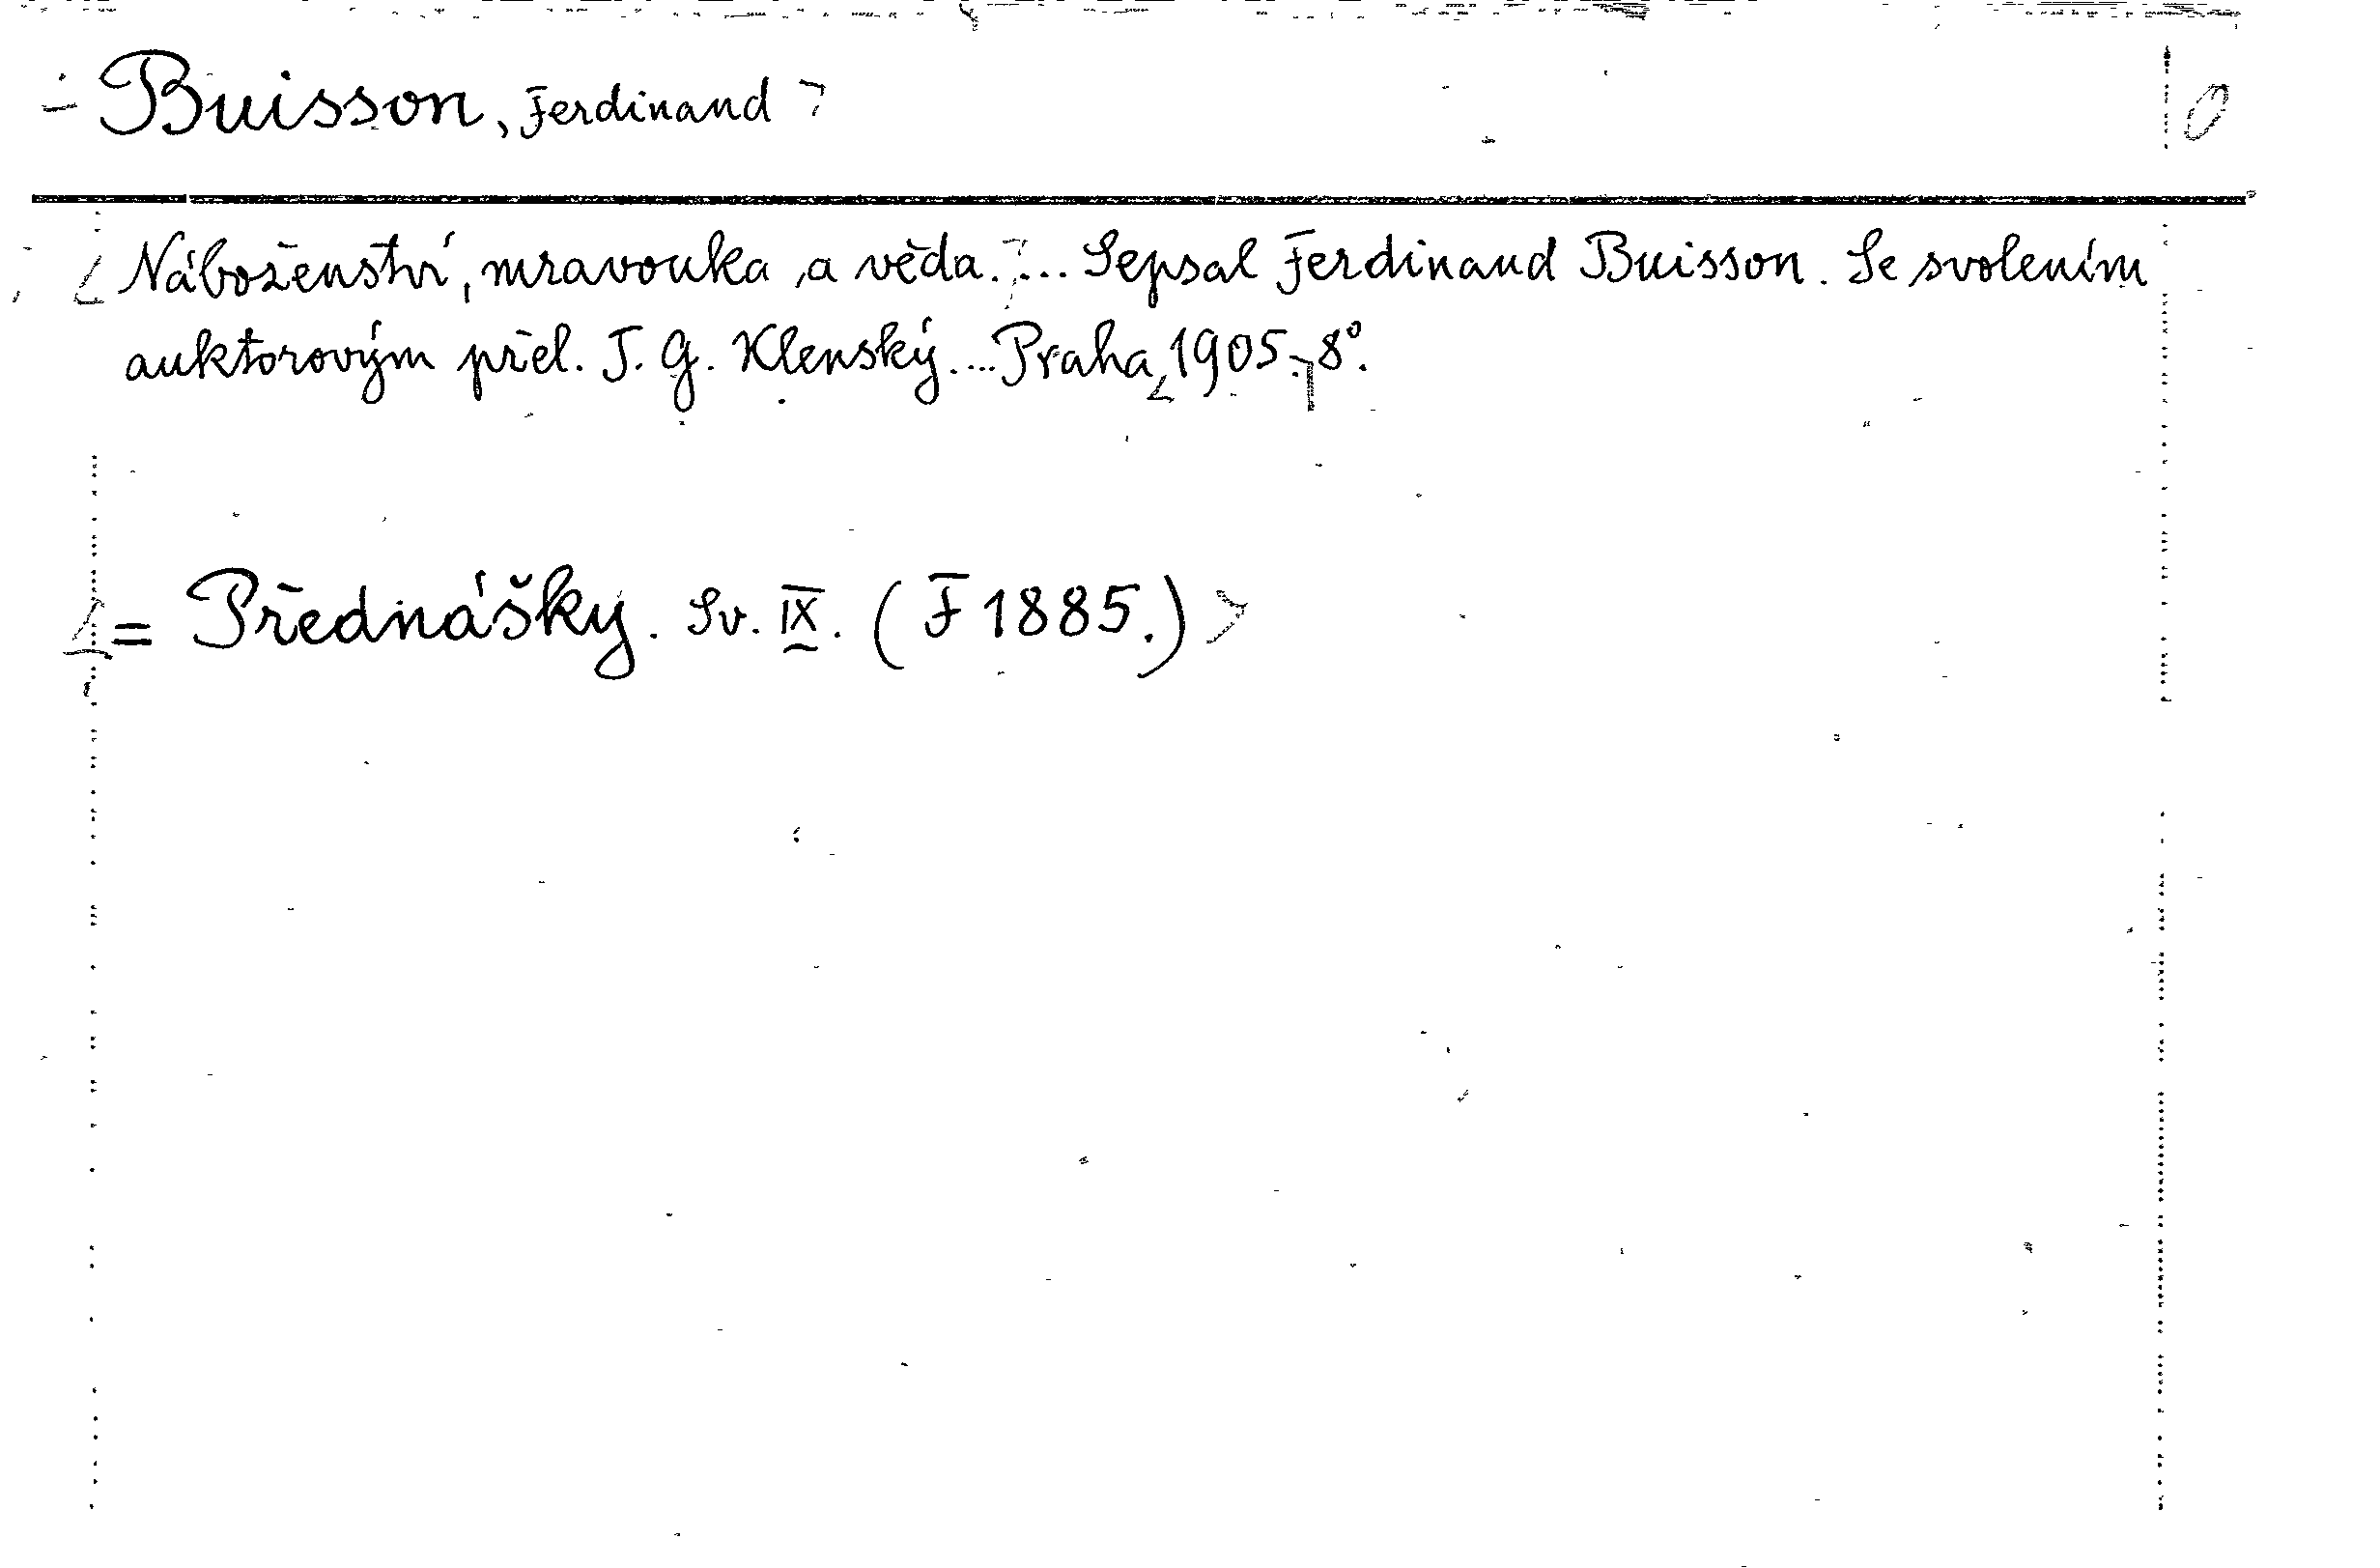 Buisson, Ferdinand
Náboženství, mravouka a věda. ... Sepsal Ferdinand Buisson. Se svolením
auktorovým přel. J. G. Klenský.... Praha, 1905. 8°.
= Přednášky. Sv. IX. (F 1885.)